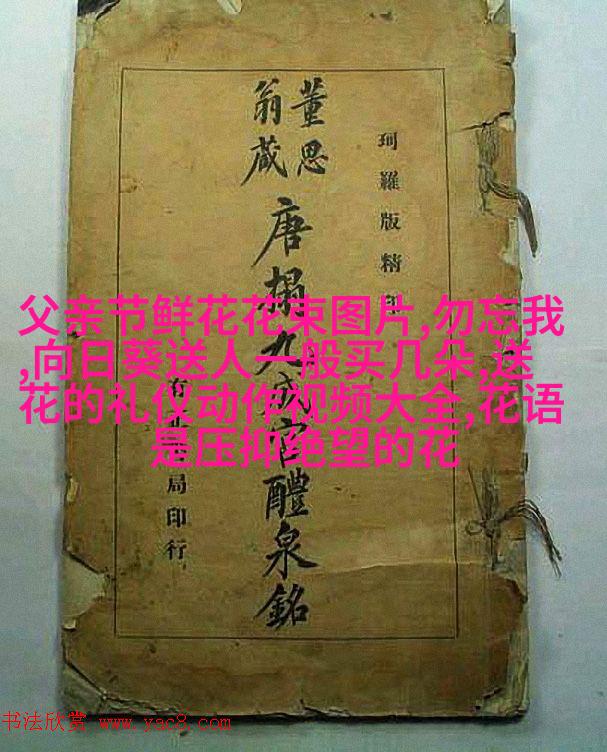 珂羅版精
董思
翁藏
唐搨九成宮醴泉銘
有局印行
父亲节鲜花花束图片,勿忘我
,向日葵送人一般买几朵,送
花的礼仪动作视频大全,花语
是压抑绝望的花
书法欣赏 www.yac8.com